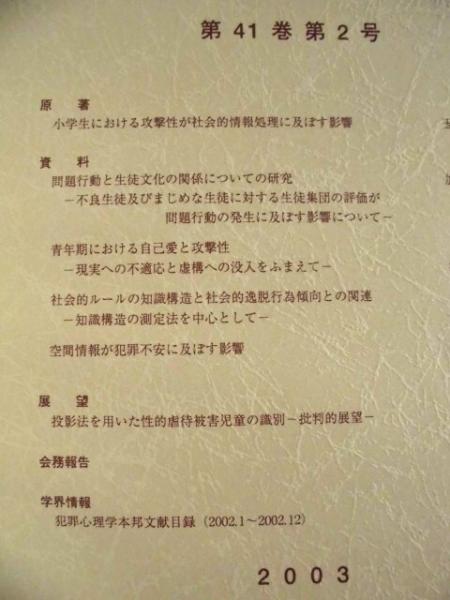 第 41 巻 第 2 号
原 著
小学生における攻撃性が社会的情報処理に及ぼす影響
資 料
問題行動と生徒文化の関係についての研究
－不良生徒及びまじめな生徒に対する生徒集団の評価が
問題行動の発生に及ぼす影響について－
青年期における自己愛と攻撃性
－現実への不適応と虚構への没入をふまえて－
社会的ルールの知識構造と社会的逸脱行為傾向との関連
－知識構造の測定法を中心として－
空間情報が犯罪不安に及ぼす影響
展 望
投影法を用いた性的虐待被害児童の識別－批判的展望－
会務報告
学界情報
犯罪心理学本邦文献目録（2002.1～2002.12）
2 0 0 3